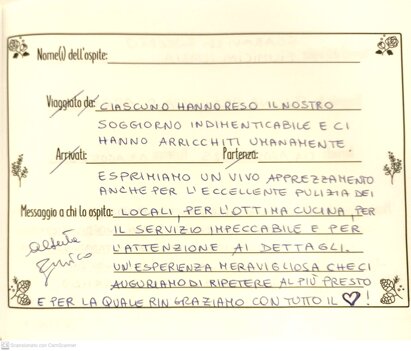 Nome(i) dell'ospite:
Viaggiato da: CIASCUNO HANNO RESO IL NOSTRO
SOGGIORNO INDIMENTICABILE E CI
HANNO ARRICCHITI UMANAMENTE.
Arrivati: Partenza:
ESPRIMIAMO UN VIVO APPREZZAMENTO
ANCHE PER L'ECCELLENTE PULIZIA DEI
Messaggio a chi lo ospita: LOCALI, PER L'OTTIMA CUCINA, PER
IL SERVIZIO IMPECCABILE E PER
L'ATTENZIONE AI DETTAGLI.
UN'ESPERIENZA MERAVIGLIOSA CHE CI
AUGURIAMO DI RIPETERE AL PIÙ PRESTO
E PER LA QUALE RINGRAZIAMO CON TUTTO IL ♥!
Enrico
Scansionato con CamScanner